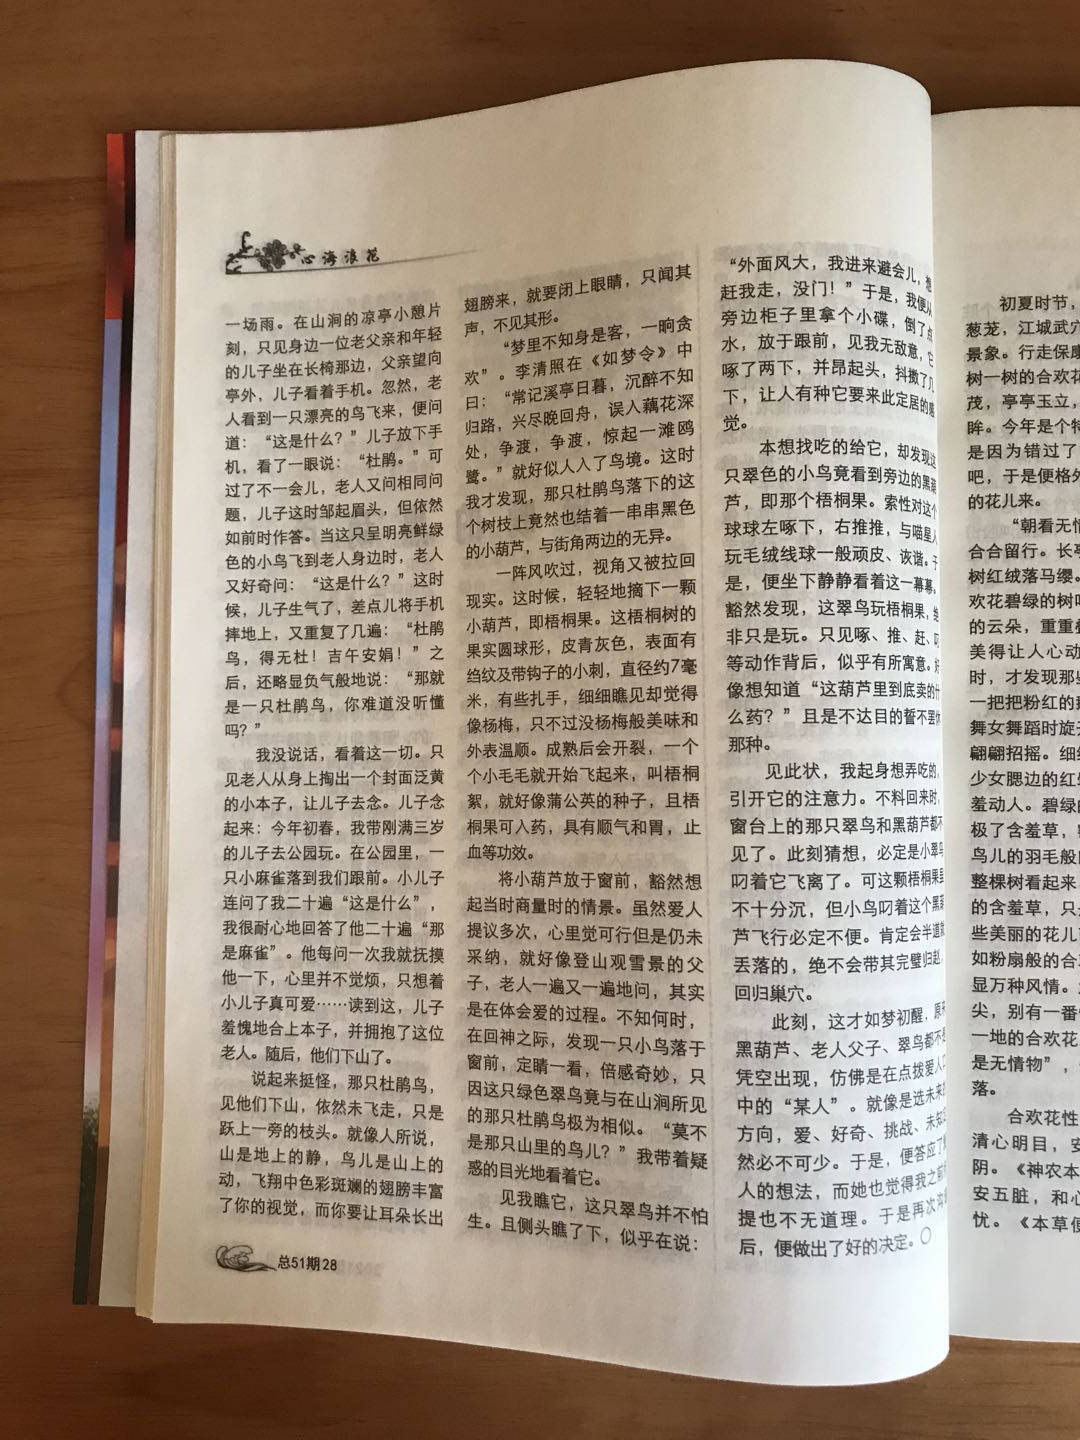 心海浪花
一场雨。在山涧的凉亭小憩片
刻，只见身边一位老父亲和年轻
的儿子坐在长椅那边，父亲望向
亭外，儿子看着手机。忽然，老
人看到一只漂亮的鸟飞来，便问
道：“这是什么？”儿子放下手
机，看了一眼说：“杜鹃。”可
过了不一会儿，老人又问相同问
题，儿子这时邹起眉头，但依然
如前时作答。当这只呈明亮鲜绿
色的小鸟飞到老人身边时，老人
又好奇问：“这是什么？”这时
候，儿子生气了，差点儿将手机
摔地上，又重复了几遍：“杜鹃
鸟，得无杜！吉午安娟！”之
后，还略显负气般地说：“那就
是一只杜鹃鸟，你难道没听懂
吗？”
我没说话，看着这一切。只
见老人从身上掏出一个封面泛黄
的小本子，让儿子去念。儿子念
起来：今年初春，我带刚满三岁
的儿子去公园玩。在公园里，一
只小麻雀落到我们跟前。小儿子
连问了我二十遍“这是什么”，
我很耐心地回答了他二十遍“那
是麻雀”。他每问一次我就抚摸
他一下，心里并不觉烦，只想着
小儿子真可爱……读到这，儿子
羞愧地合上本子，并拥抱了这位
老人。随后，他们下山了。
说起来挺怪，那只杜鹃鸟，
见他们下山，依然未飞走，只是
跃上一旁的枝头。就像人所说，
山是地上的静，鸟儿是山上的
动，飞翔中色彩斑斓的翅膀丰富
了你的视觉，而你要让耳朵长出
翅膀来，就要闭上眼睛，只闻其
声，不见其形。
“梦里不知身是客，一晌贪
欢”。李清照在《如梦令》中
曰：“常记溪亭日暮，沉醉不知
归路，兴尽晚回舟，误入藕花深
处，争渡，争渡，惊起一滩鸥
鹭。”就好似人入了鸟境。这时
我才发现，那只杜鹃鸟落下的这
个树枝上竟然也结着一串串黑色
的小葫芦，与街角两边的无异。
一阵风吹过，视角又被拉回
现实。这时候，轻轻地摘下一颗
小葫芦，即梧桐果。这梧桐树的
果实圆球形，皮青灰色，表面有
绉纹及带钩子的小刺，直径约7毫
米，有些扎手，细细瞧见却觉得
像杨梅，只不过没杨梅般美味和
外表温顺。成熟后会开裂，一个
个小毛毛就开始飞起来，叫梧桐
絮，就好像蒲公英的种子，且梧
桐果可入药，具有顺气和胃，止
血等功效。
将小葫芦放于窗前，豁然想
起当时商量时的情景。虽然爱人
提议多次，心里觉可行但是仍未
采纳，就好像登山观雪景的父
子，老人一遍又一遍地问，其实
是在体会爱的过程。不知何时，
在回神之际，发现一只小鸟落于
窗前，定睛一看，倍感奇妙，只
因这只绿色翠鸟竟与在山涧所见
的那只杜鹃鸟极为相似。“莫不
是那只山里的鸟儿？”我带着疑
惑的目光地看着它。
见我瞧它，这只翠鸟并不怕
生。且侧头瞧了下，似乎在说：
“外面风大，我进来避会儿，想
赶我走，没门！”于是，我便从
旁边柜子里拿个小碟，倒了点
水，放于跟前，见我无敌意，它
啄了两下，并昂起头，抖擞了几
下，让人有种它要来此定居的感
觉。
本想找吃的给它，却发现这
只翠色的小鸟竟看到旁边的黑葫
芦，即那个梧桐果。索性对这个
球球左啄下，右推推，与喵星人
玩毛绒线球一般顽皮、诙谐。于
是，便坐下静静看着这一幕幕。
豁然发现，这翠鸟玩梧桐果，绝
非只是玩。只见啄、推、赶、叼
等动作背后，似乎有所寓意。好
像想知道“这葫芦里到底卖的什
么药？”且是不达目的誓不罢休
那种。
见此状，我起身想弄吃的，
引开它的注意力。不料回来时，
窗台上的那只翠鸟和黑葫芦都不
见了。此刻猜想，必定是小翠鸟
叼着它飞离了。可这颗梧桐果虽
不十分沉，但小鸟叼着这个黑葫
芦飞行必定不便。肯定会半道就
丢落的，绝不会带其完璧归赵，
回归巢穴。
此刻，这才如梦初醒，原来
黑葫芦、老人父子、翠鸟都不是
凭空出现，仿佛是在点拨爱人口
中的“某人”。就像是选未来的
方向，爱、好奇、挑战、未知
然必不可少。于是，便答应了
人的想法，而她也觉得我之前
提也不无道理。于是再次
后，便做出了好的决定。○
总51期28
初夏时节，
葱茏，江城武穴
景象。行走保康
树一树的合欢花
茂，亭亭玉立，
眸。今年是个特
是因为错过了
吧，于是便格外
的花儿来。
“朝看无情
合合留行。长亭
树红绒落马缨。
欢花碧绿的树叶
的云朵，重重叠
美得让人心动
时，才发现那些
一把把粉红的
舞女舞蹈时旋
翩翩招摇。细
少女腮边的红
羞动人。碧绿的
极了含羞草，
鸟儿的羽毛般
整棵树看起来
的含羞草，只
些美丽的花儿
如粉扇般的合
显万种风情。
尖，别有一番
一地的合欢花
是无情物”，
落。
合欢花性
清心明目，安
阴。《神农本
安五脏，和心
忧。《本草便